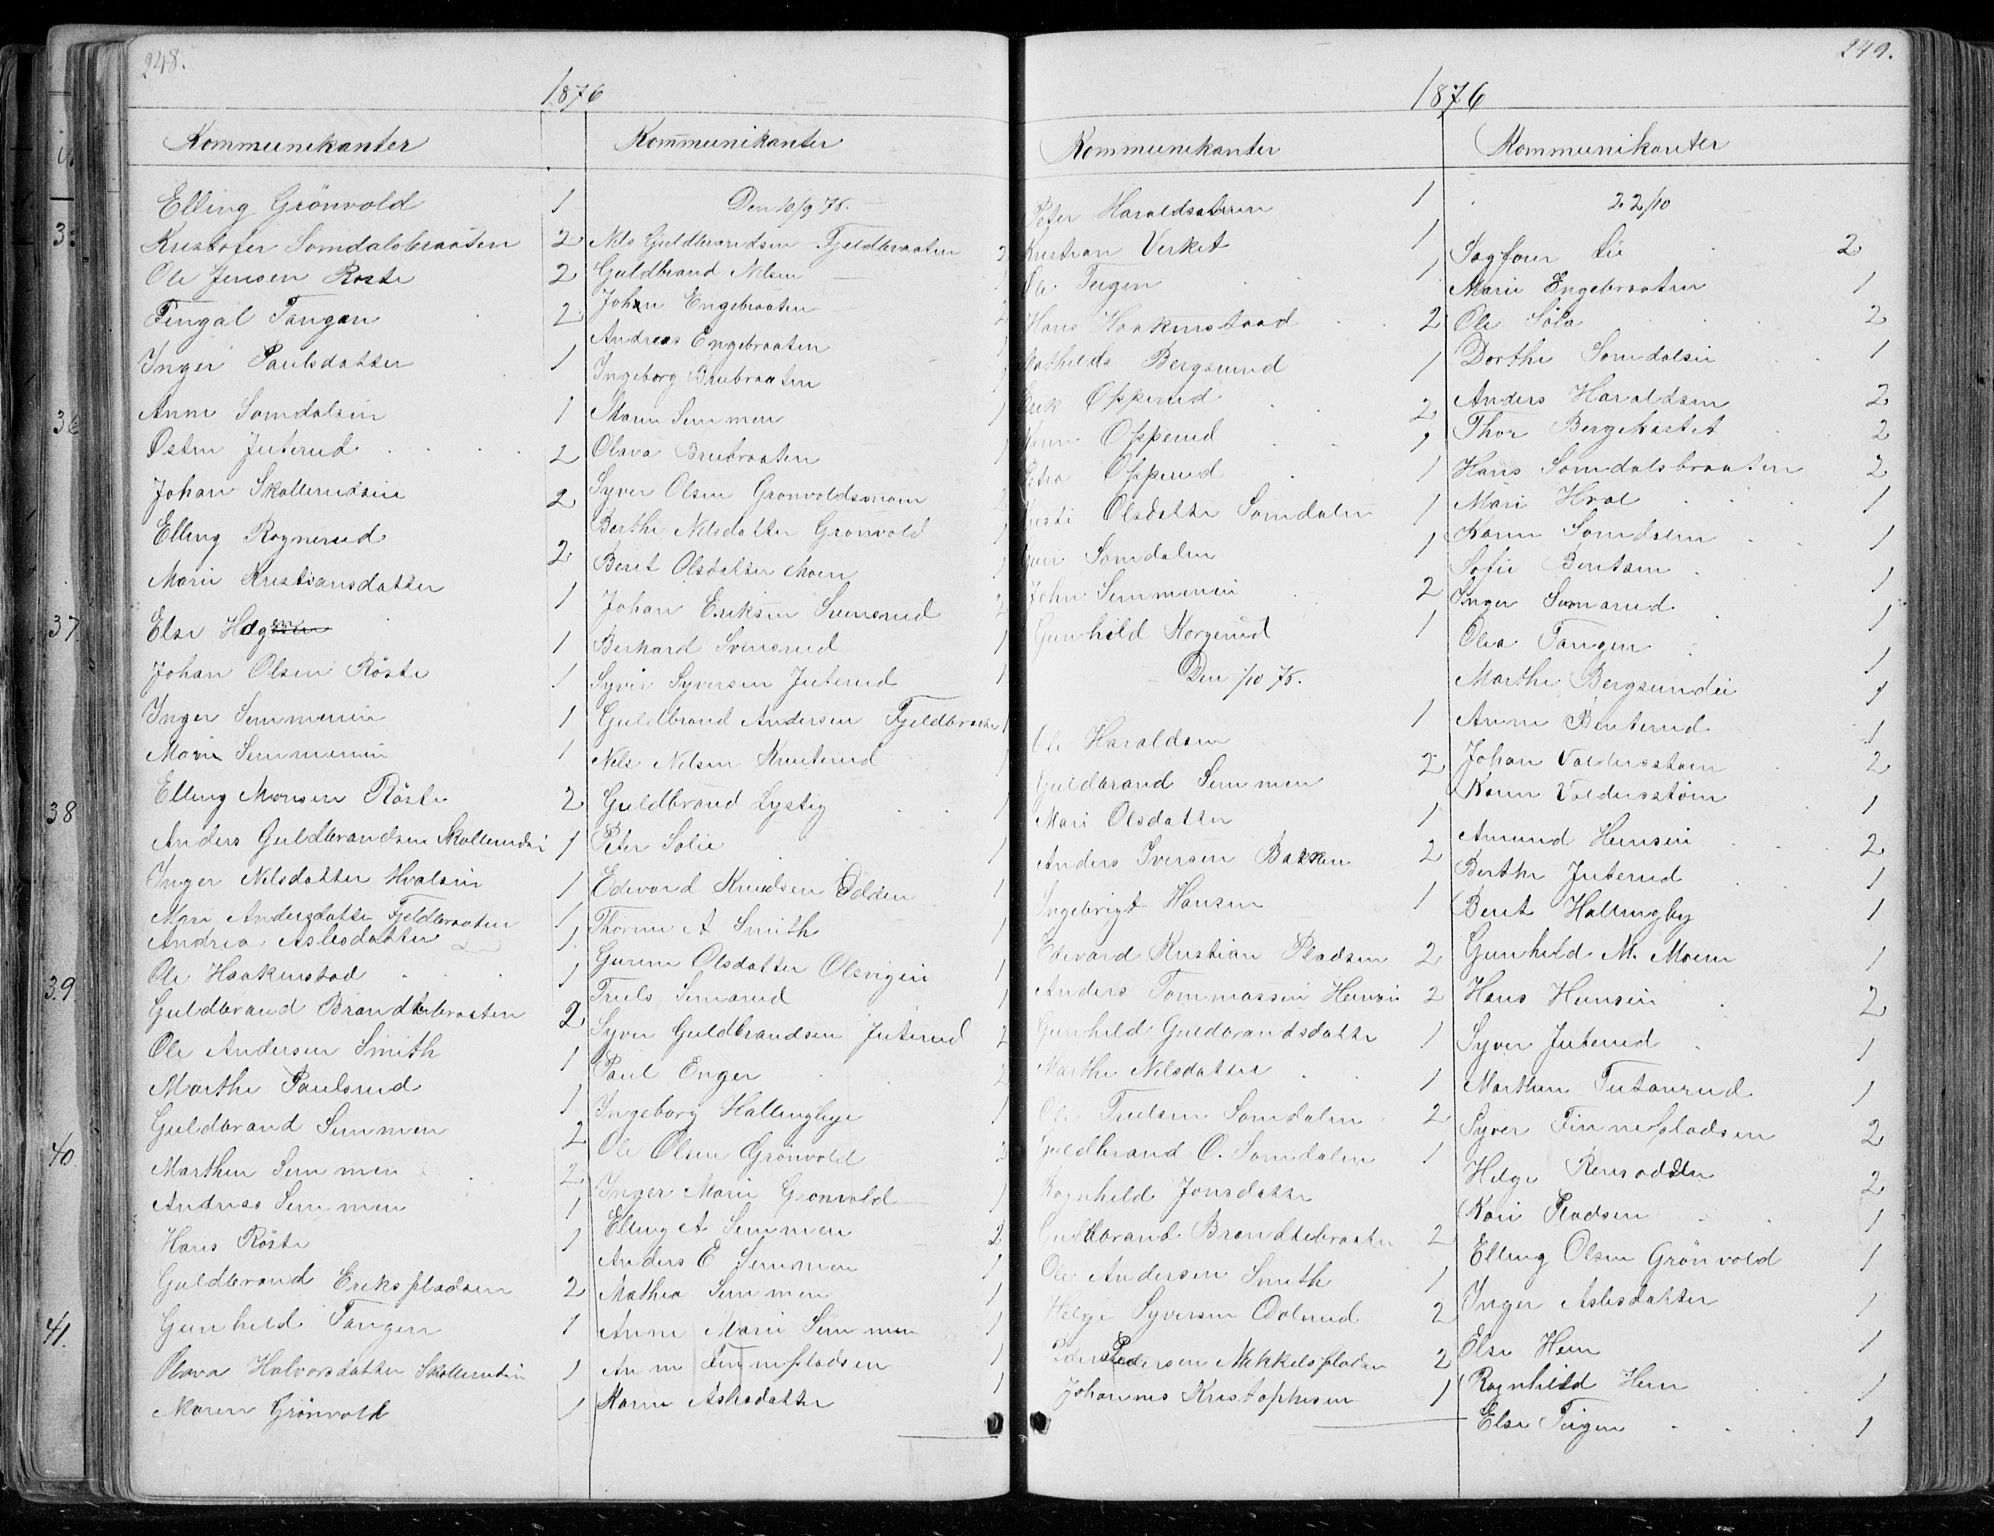 248.
1876
Kommunikanter
Elling Grönvold 1
Kristofer Somdalsbraaten 2
Ole Jensen Röste 2
Fingal Tangen 2
Inger Paulsdatter 1
Anne Somdalsein 1
Østen Juterud 2
Johan Skollerudseie 2
Elling Rognerud 2
Marie Kristiansdatter 1
Else Hag 1
Johan Olsen Röste 1
Inger Semmenein 1
Marie Semmenein 1
Elling Monsen Röste 2
Anders Guldbrandsen Skollerudei 1
Inger Nilsdatter Hvalsein 1
Mari Andersdatter Fjeldbraaten 1
Andrea Aslesdatter 1
Ole Haakenstad 1
Guldbrand Brandtebraaten 2
Ole Andersen Smith 1
Marthe Paulsrud 1
Guldbrand Semmen 2
Marthin Semmen 2
Andreas Semmen 1
Hans Röste 1
Guldbrand Erikspladsen 2
Gunhild Tangen 1
Olava Halvorsdatter Skollerudein 1
Maren Grönvold 1
Kommunikanter
Den 10/9 76.
Nils Guldbrandsen Fjeldbraaten 2
Guldbrand Nilsen 1
Johan Engebraaten 2
Andreas Engebraaten 1
Ingeborg Brubraaten 1
Maren Semmen 1
Olava Brubraaten 1
Syver Olsen Grönvoldsmoen 2
Berthe Nilsdatter Grönvold 1
Berit Olsdatter Moen 1
Johan Eriksen Svensrud 2
Berhard Svensrud 1
Syver Syversen Juterud 1
Guldbrand Andersen Fjeldbraaten 1
Nils Nilsen Kruterud 1
Guldbrand Lystig 1
Peter Solie 1
Edevard Knudsen Odden 1
Thorine A Smith 1
Gurine Olsdatter Olsvigen 1
Truls Semarud 1
Syver Guldbrandsen Juterud 2
Paul Enger 2
Ingeborg Hallingbye 1
Ole Olsen Grönvold 2
Inger Marie Gronvold 1
Elling A Semmen 2
Anders E Semmen 1
Mathea Semmen 1
Anne Marie Semmen 1
Anne Finnepladsen 1
Karen Aslesdatter 1
249.
1876
Kommunikanter
Peter Haraldsstuen 1
Kristian Verket 1
Ole Teigen 1
Hans Haakenstaad 2
Mathilda Bergsund 1
Erik Opperud 2
Opperud 1
Petra Opperud 1
Olsdatter Somdalen 1
Guri Somdalen 1
John Semmenei 2
Gunhild Korgerud 1
Den 1/10 76.
Ole Haraldsen 1
Guldbrand Semmen 2
Mari Olsdatter 1
Anders Iversen Bakken 2
Ingebrigt Hansen 1
Edevard Kristian Pladsen 2
Anders Tommassen Hensei 2
Gunhild Guldbrandsdatter 1
Marthe Nilsdatter 1
Ole Trulsen Somdalen 2
Guldbrand O. Somdalen 1
Ragnhild Jonsdatter
Guldbrand Brandtebraaten 2
Ole Andersen Smith 1
Helge Syversen Dolerud 2
Peder Pedersen Mikkelspladsen 2
Johannes Kristophersen 1
Kommunikanter
22/10
Sagfører Lie 2
Marie Engebraaten 1
Ole Sola 2
Dorthe Somdalsei 1
Anders Haraldsen 2
Thor Bergehastet 2
Hans Somdalsbraaten 2
Mari Hval 1
Karen Somdalen 1
Sofie Bentsen 1
Inger Semarud 1
Olea Tangen 1
Marthe Bergsundei 1
Anne Benterud 1
Johan Valdersstøen 2
Karen Valdersstøen 1
Amund Hensei 2
Berthe Juterud 1
Berit Hallingby 1
Gunhild M. Moene 1
Hans Hensein 2
Syver Juterud 1
Marthin Tutanrud 1
Syver Finnepladsen 2
Helge Rensodden 2
Kari Pladsen 1
Elling Olsen Grönvold 1
Inger Aslesdatter 1
Else Hein 1
Ragnhild Hein 1
Else Teigen 1
37
38
39
40
41.